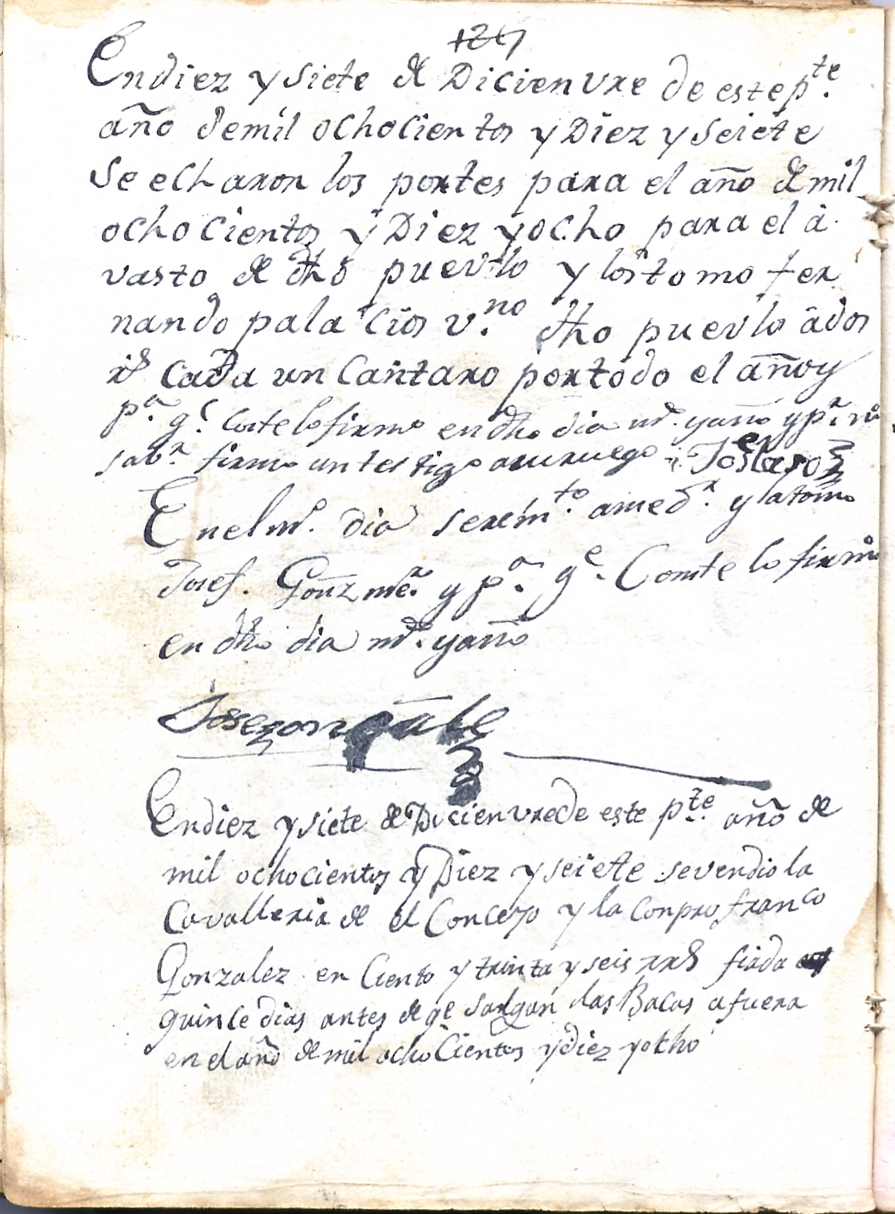 Endiez y siete de Dicienvre de este pte.
año demil ochocientos y Diez y seiete
Se echaron los portes para el año de mil
ochocientos y Diez yocho para el â
vasto de dho puevlo y los tomo fer
nando palacios v.no dho puevlo âdos
rs Cada un Cantaro portodo el añoy
pa. qe. Conste lo firmo en dho dia ms. yaño ypr. no
savr. firmo un testigo aruruego
En el ms. dia Seremto. amedr. y latomo
Josef. Gonz y pa. qe. Conste lo firmo
en dho dia ms. yaño
Endiez y siete de Dicienvrede este pte. año de
mil ochocientos y Diez y seiete sevendio la
Cavalleria de el Concejo y la Conpro franco
Gonzalez en Ciento y trinta y seis rrs fiada
quince dias antes de qe Salgan las Bacas afuera
en el año de mil ocho Cientos ydiez yotho